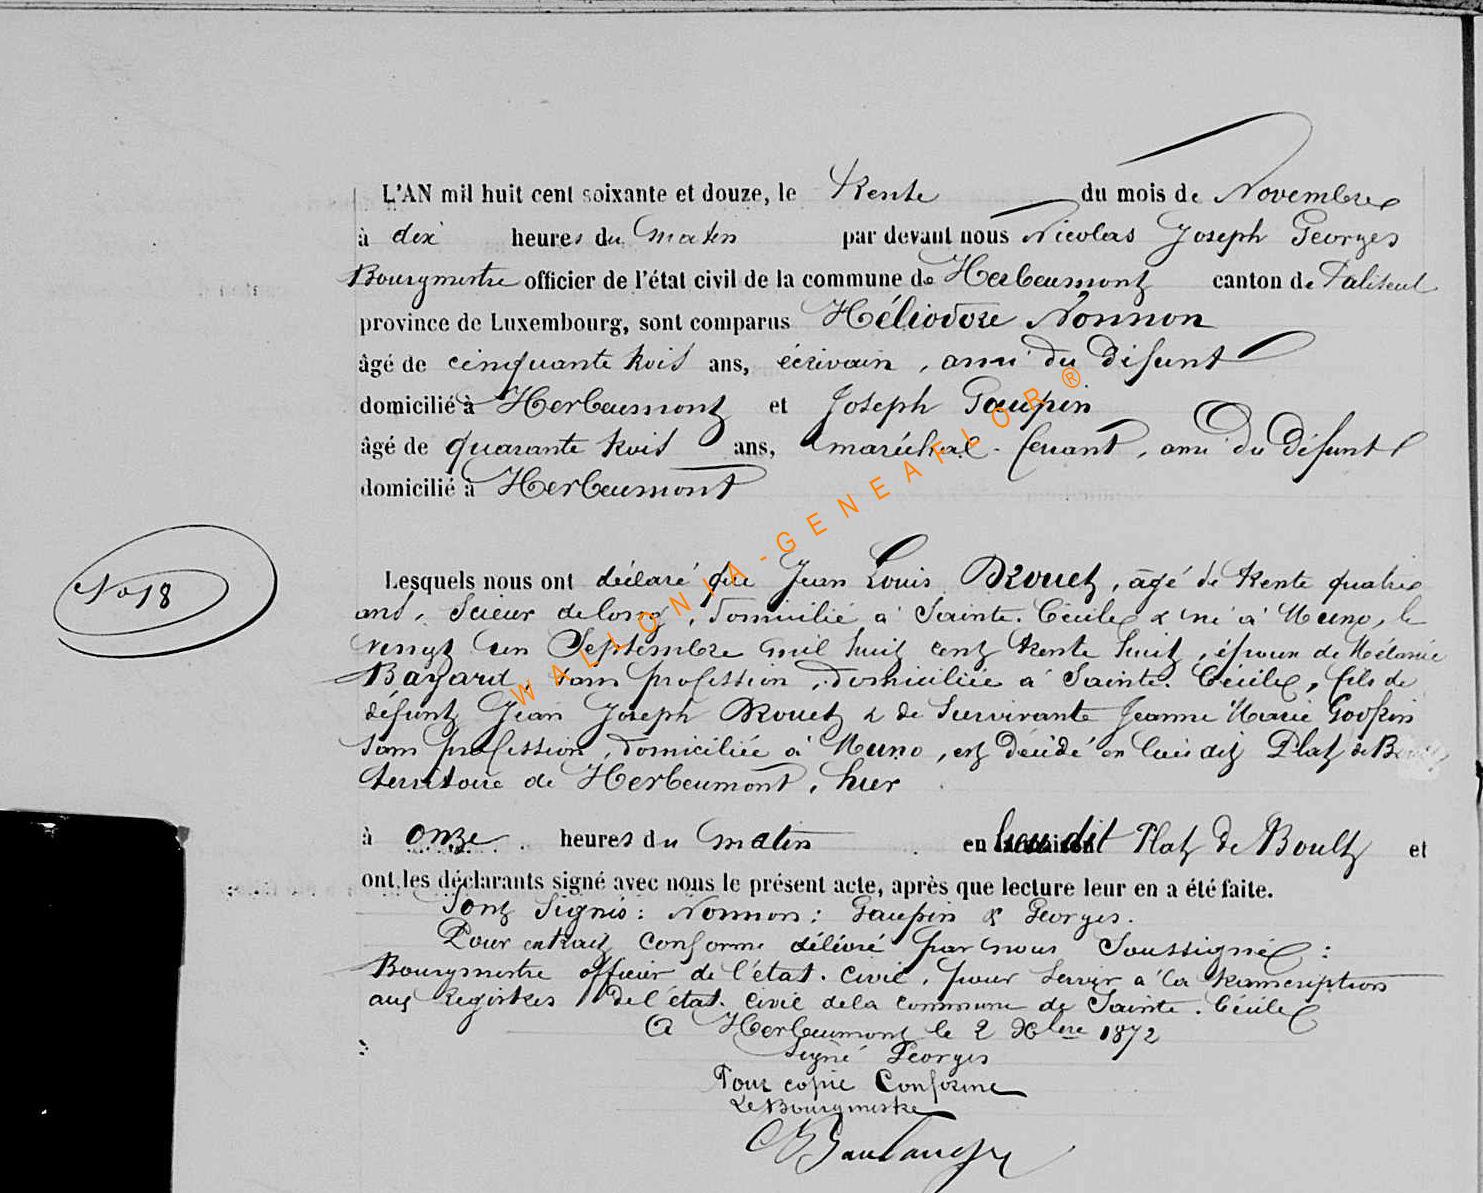 L'AN mil huit cent soixante et douze, le trente du mois de Novembre
à dix heures du matin par devant nous Nicolas Joseph Georges
Bourgmestre officier de l'état civil de la commune de Herbeumont canton de Paliseul
province de Luxembourg, sont comparus Héliodore Nonnon
âgé de cinquante trois ans, écrivain, ami du défunt
domicilié à Herbeumont et Joseph Gaupin
âgé de quarante trois ans, maréchal-ferrant, ami du défunt
domicilié à Herbeumont
No 18
Lesquels nous ont déclaré que Jean Louis Drouet, âgé de trente quatre
ans, Scieur de long, domicilié à Sainte. Cécile & né à Muno, le
vingt un Septembre mil huit cent trente huit, époux de Mélanie
Bayard, sans profession, domiciliée à Sainte. Cécile, fils de
défunt Jean Joseph Drouet & de survivante Jeanne Marie
sans profession, domiciliée à Muno, est décédé en lieu dit Plat de
territoire de Herbeumont, hier
à onze heures du matin en lieu dit Plat de Boult et
ont les déclarants signé avec nous le présent acte, après que lecture leur en a été faite.
Sont Signés: Nonnon: Gaupin & Georges.
Pour extrait conforme délivré par nous Soussigné:
Bourgmestre officier de l'état. civil, pour servir à la transcription
aux Registres de l'état. civil de la commune de Sainte. Cécile
A Herbeumont le 2 Xbre 1872
Signé Georges
Pour copie Conforme
Le Bourgmestre
WALLONIA-GENEAFLOR®